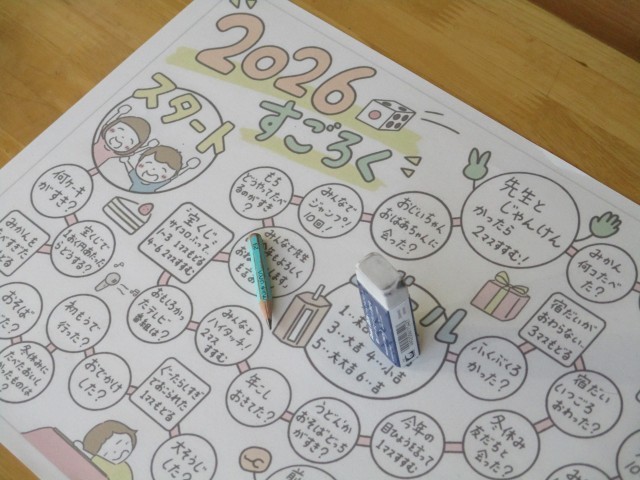 2026
すごろく
スタート
何ケーキ
がすき?
もち
どうやってたべ
るのがすき?
みんなで
ジャンプ!
10回!
おじいちゃん
おばあちゃんに
会った?
先生と
じゃんけん
かったら
2マスすすむ!
みかん
何コたべ
た?
宝くじで
1おく円あたったら
どうする?
宝くじ
サイコロふって
1〜3 1マスもどる
4〜6 2マスすすむ
みんな先生
おもしろかっ
たテレビ
番組は?
みんなと
ハイタッチ!
2マス
すすむ!
はつもうで
行った?
おでかけ
した?
ぐーたらしすぎ
ておこられた
1マスもどる
年こし
おきてた?
うどんか
おそばどっち
がすき?
今年の
目ひょうを言って
1マスすすむ
冬休み
友だちと
会った?
ふくぶくろ
かった?
宿だいが
おわらない。
3マスもどる
宿だい
いつごろ
おわった?
ール
3‥大吉 4‥小吉
5‥大大吉 6‥吉
大そうじ
した?